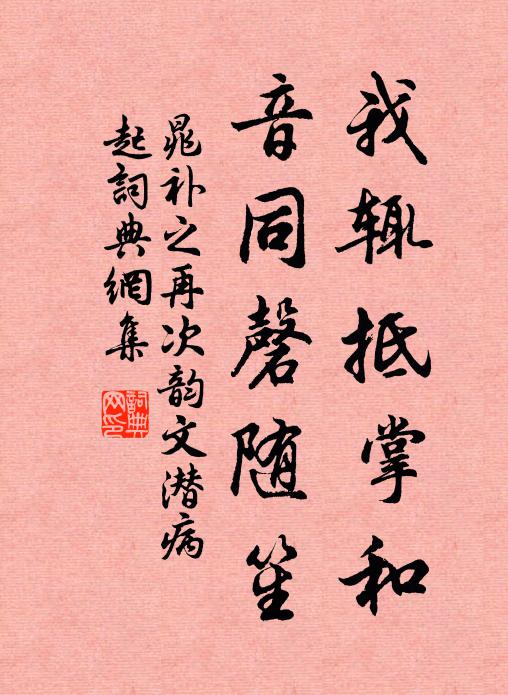 我辄抵掌和
音同磬随笙
晁补之再次韵文潜病
起詞典網集
詞典
网印